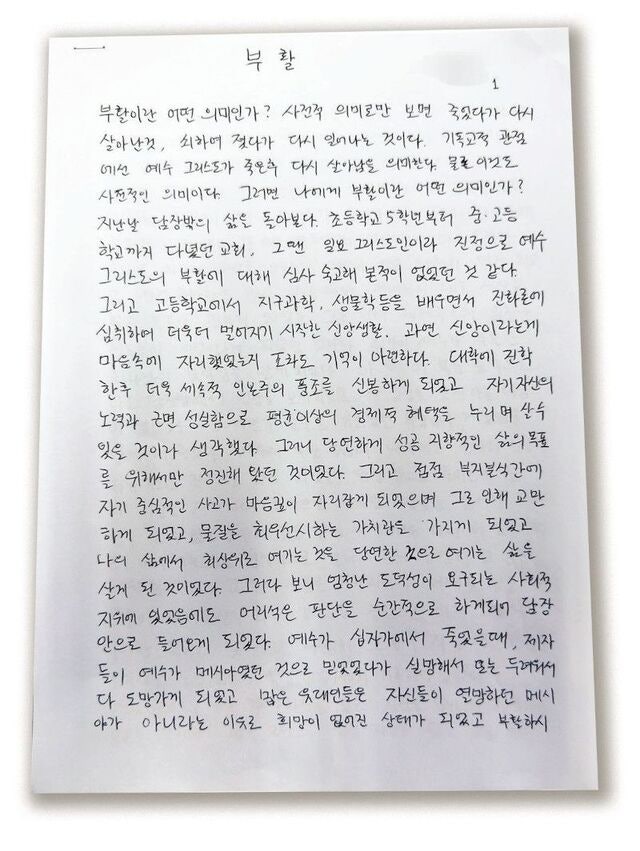 부 활
1
부활이란 어떤 의미인가? 사전적 의미로만 보면 죽었다가 다시
살아난것, 쇠하여 졌다가 다시 일어나는 것이다. 기독교적 관점
에선 예수 그리스도가 죽은후 다시 살아남을 의미한다. 물론 이것도
사전적인 의미이다. 그러면 나에게 부활이란 어떤 의미인가?
지난날 담장밖의 삶을 돌아보다. 초등학교 5학년부터 중·고등
학교까지 다녔던 교회, 그땐 일요 그리스도인이라 진정으로 예수
그리스도의 부활에 대해 심사 숙고해 본적이 없었던 것 같다.
그리고 고등학교에서 지구과학, 생물학등을 배우면서 진화론에
심취하여 더욱더 멀어지기 시작한 신앙생활. 과연 신앙이라는게
마음속에 자리했었는지 조차도 기억이 아련하다. 대학에 진학
한후 더욱 세속적 인본주의 풍조를 신봉하게 되었고 자기자신의
노력과 근면 성실함으로 평균이상의 경제적 혜택을 누리며 살수
있을 것이라 생각했다. 그러니 당연하게 성공 지향적인 삶의목표
를 위해서만 정진해 왔던 것이었다. 그리고 점점 부지불식간에
자기 중심적인 사고가 마음깊이 자리잡게 되었으며 그로 인해 교만
하게 되었고, 물질을 최우선시하는 가치관을 가지게 되었고
나의 삶에서 최상위로 여기는 것을 당연한 것으로 여기는 삶을
살게 된 것이었다. 그러다 보니 엄청난 도덕성이 요구되는 사회적
지위에 있었음에도 어리석은 판단을 순간적으로 하게되어 담장
안으로 들어오게 되었다. 예수가 십자가에서 죽었을때, 제자
들이 예수가 메시아였던 것으로 믿었었다가 실망해서 또는 두려워서
다 도망가게 되었고 많은 유대인들은 자신들이 열망하던 메시
아가 아니라는 이유로 희망이 없어진 상태가 되었고 부활하시